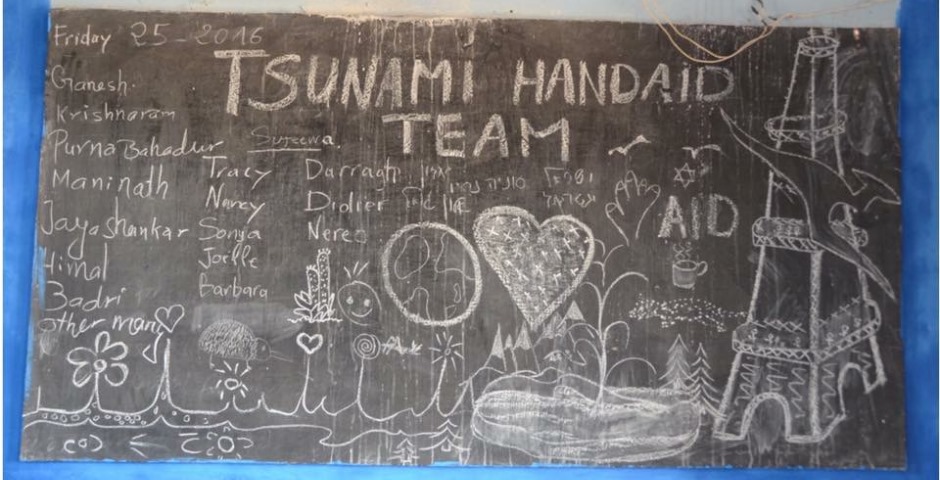 Friday 25-2016
TSUNAMI HANDAID
TEAM
Ganesh.
Krishnaram
Purna Bahadur
Maninath
Jayashankar
Himal
Badri
other many
Sujeewa.
Tracy
Nancy
Sonya
Joelle
Barbara
Darragh
Didier
Nereo
AID